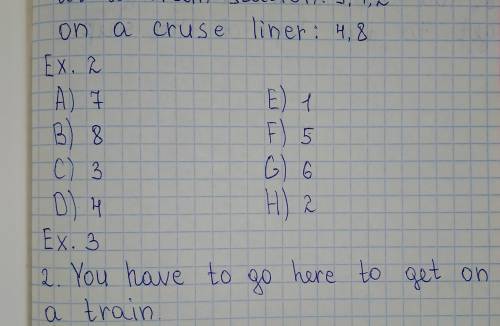 on a cruse liner: 4,8
Ex. 2
A) 7 E) 1
B) 8 F) 5
C) 3 G) 6
D) 4 H) 2
Ex. 3
2. You have to go here to get on
a train.